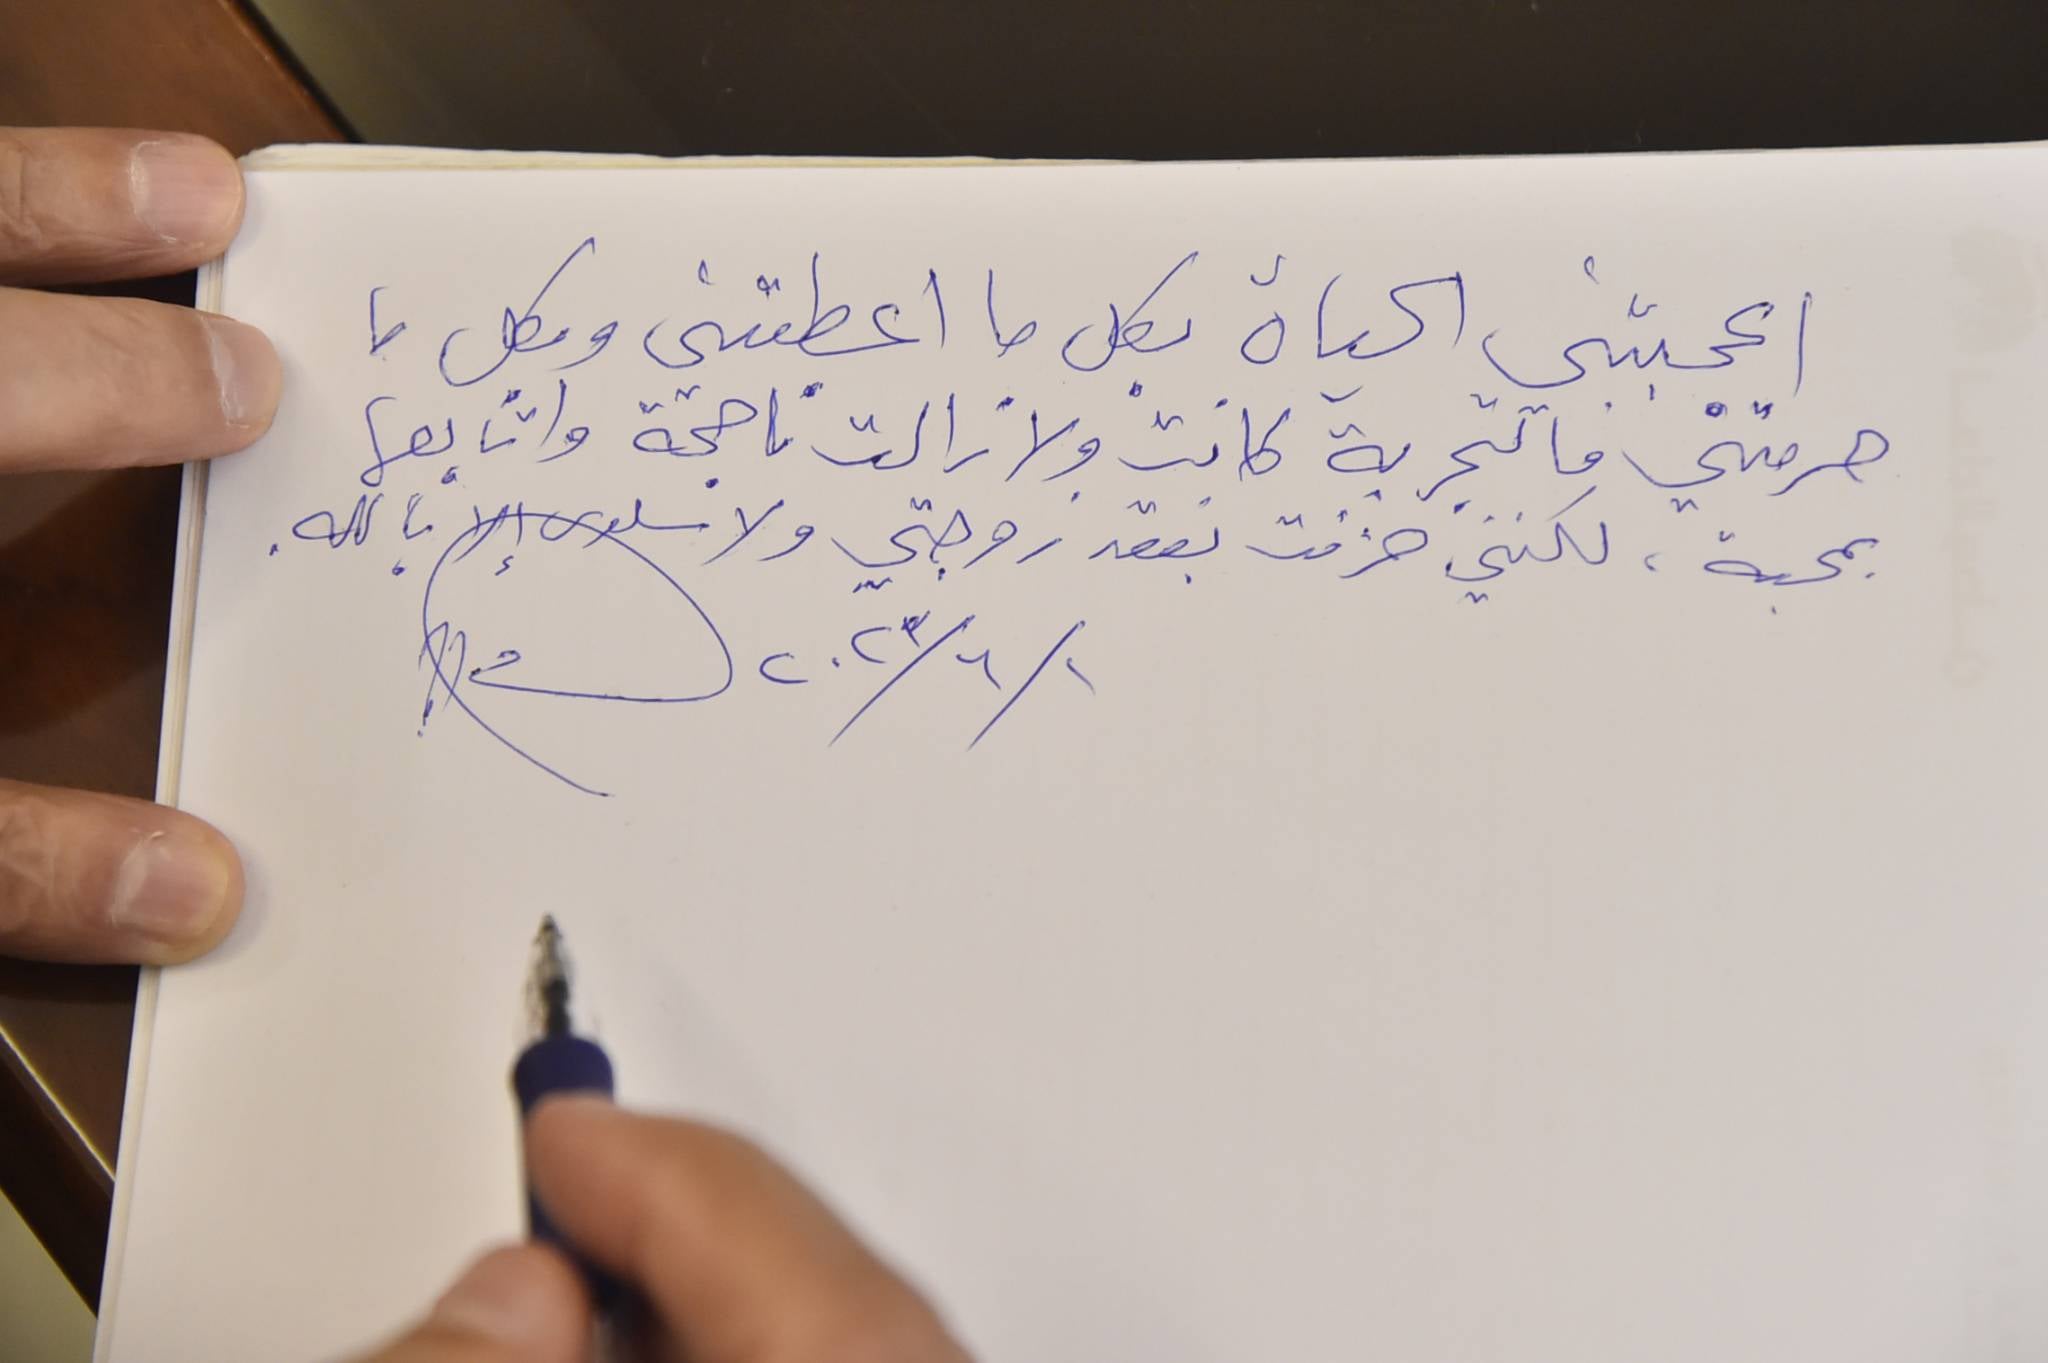 اعجبتني الحياة بكل ما اعطتني وبكل ما
حرمتني فالتجربة كانت ولازالت ناجحة واتابعها
بمحبة، لكنني حزنت بفقد زوجتي ولا سلوى إلا بالله.
٢٠٢٣/٦/١